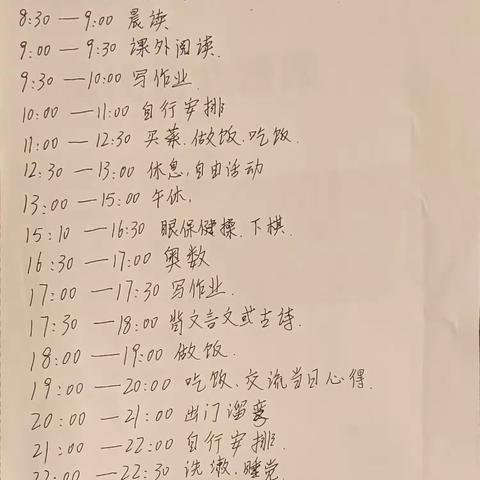 8:30 — 9:00 晨读
9:00 — 9:30 课外阅读.
9:30 — 10:00 写作业.
10:00 — 11:00 自行安排
11:00 — 12:30 买菜.做饭.吃饭.
12:30 — 13:00 休息.自由活动
13:00 — 15:00 午休.
15:10 — 16:30 眼保健操.下棋.
16:30 — 17:00 奥数
17:00 — 17:30 写作业.
17:30 — 18:00 背文言文或古诗.
18:00 — 19:00 做饭.
19:00 — 20:00 吃饭.交流当日心得.
20:00 — 21:00 出门溜弯
21:00 — 22:00 自行安排.
22:00 — 22:30 洗漱.睡觉